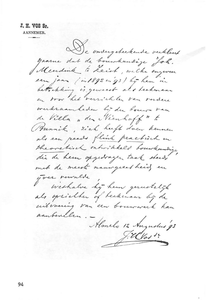 J. H. VOS Sr.
AANNEMER.
De ondergeteekende verklaart
gaarne dat de bouwkundige Joh.
Mendrik te Zeist, welke ongeveer
een jaar (in 1892-93) bij hem in
betrekking is geweest als teekenaar
en voor het verrichten van verdere
werkzaamheden bij den bouw van
de Villa "den Nienhoff" te
Bunnik, zich heeft doen kennen
als een reeds flink practisch en
theoretisch ontwikkeld bouwkundige
die de hem opgedragen taak steeds
met de meest nauwgezetheid en
ijver vervulde
Weshalve hij hem gerustelijk
als opzichter of teekenaar bij de
uitvoering van een bouwwerk kan
aanbevelen.
12 Augustus 93
94